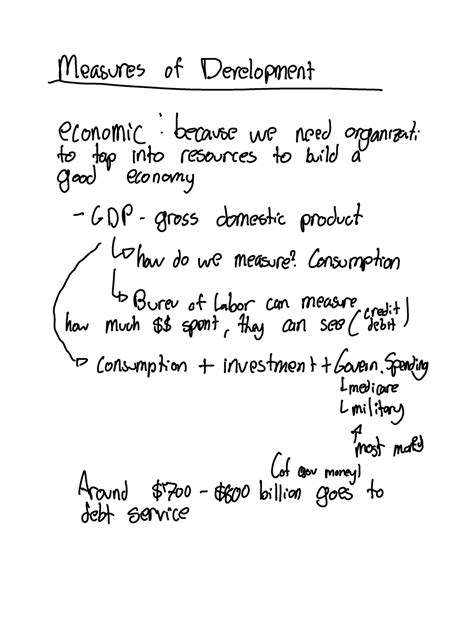 Measures of Development
economic : because we need organizati
to tap into resources to build a
good economy
- GDP - gross domestic product
how do we measure? Consumption
Bureu of Labor can measure
how much $$ spent, they can see (credit
debit)
Consumption + investment + Govern. Spending
medicare
military
most money
(of gov money)
Around $700 - $800 billion goes to
debt service